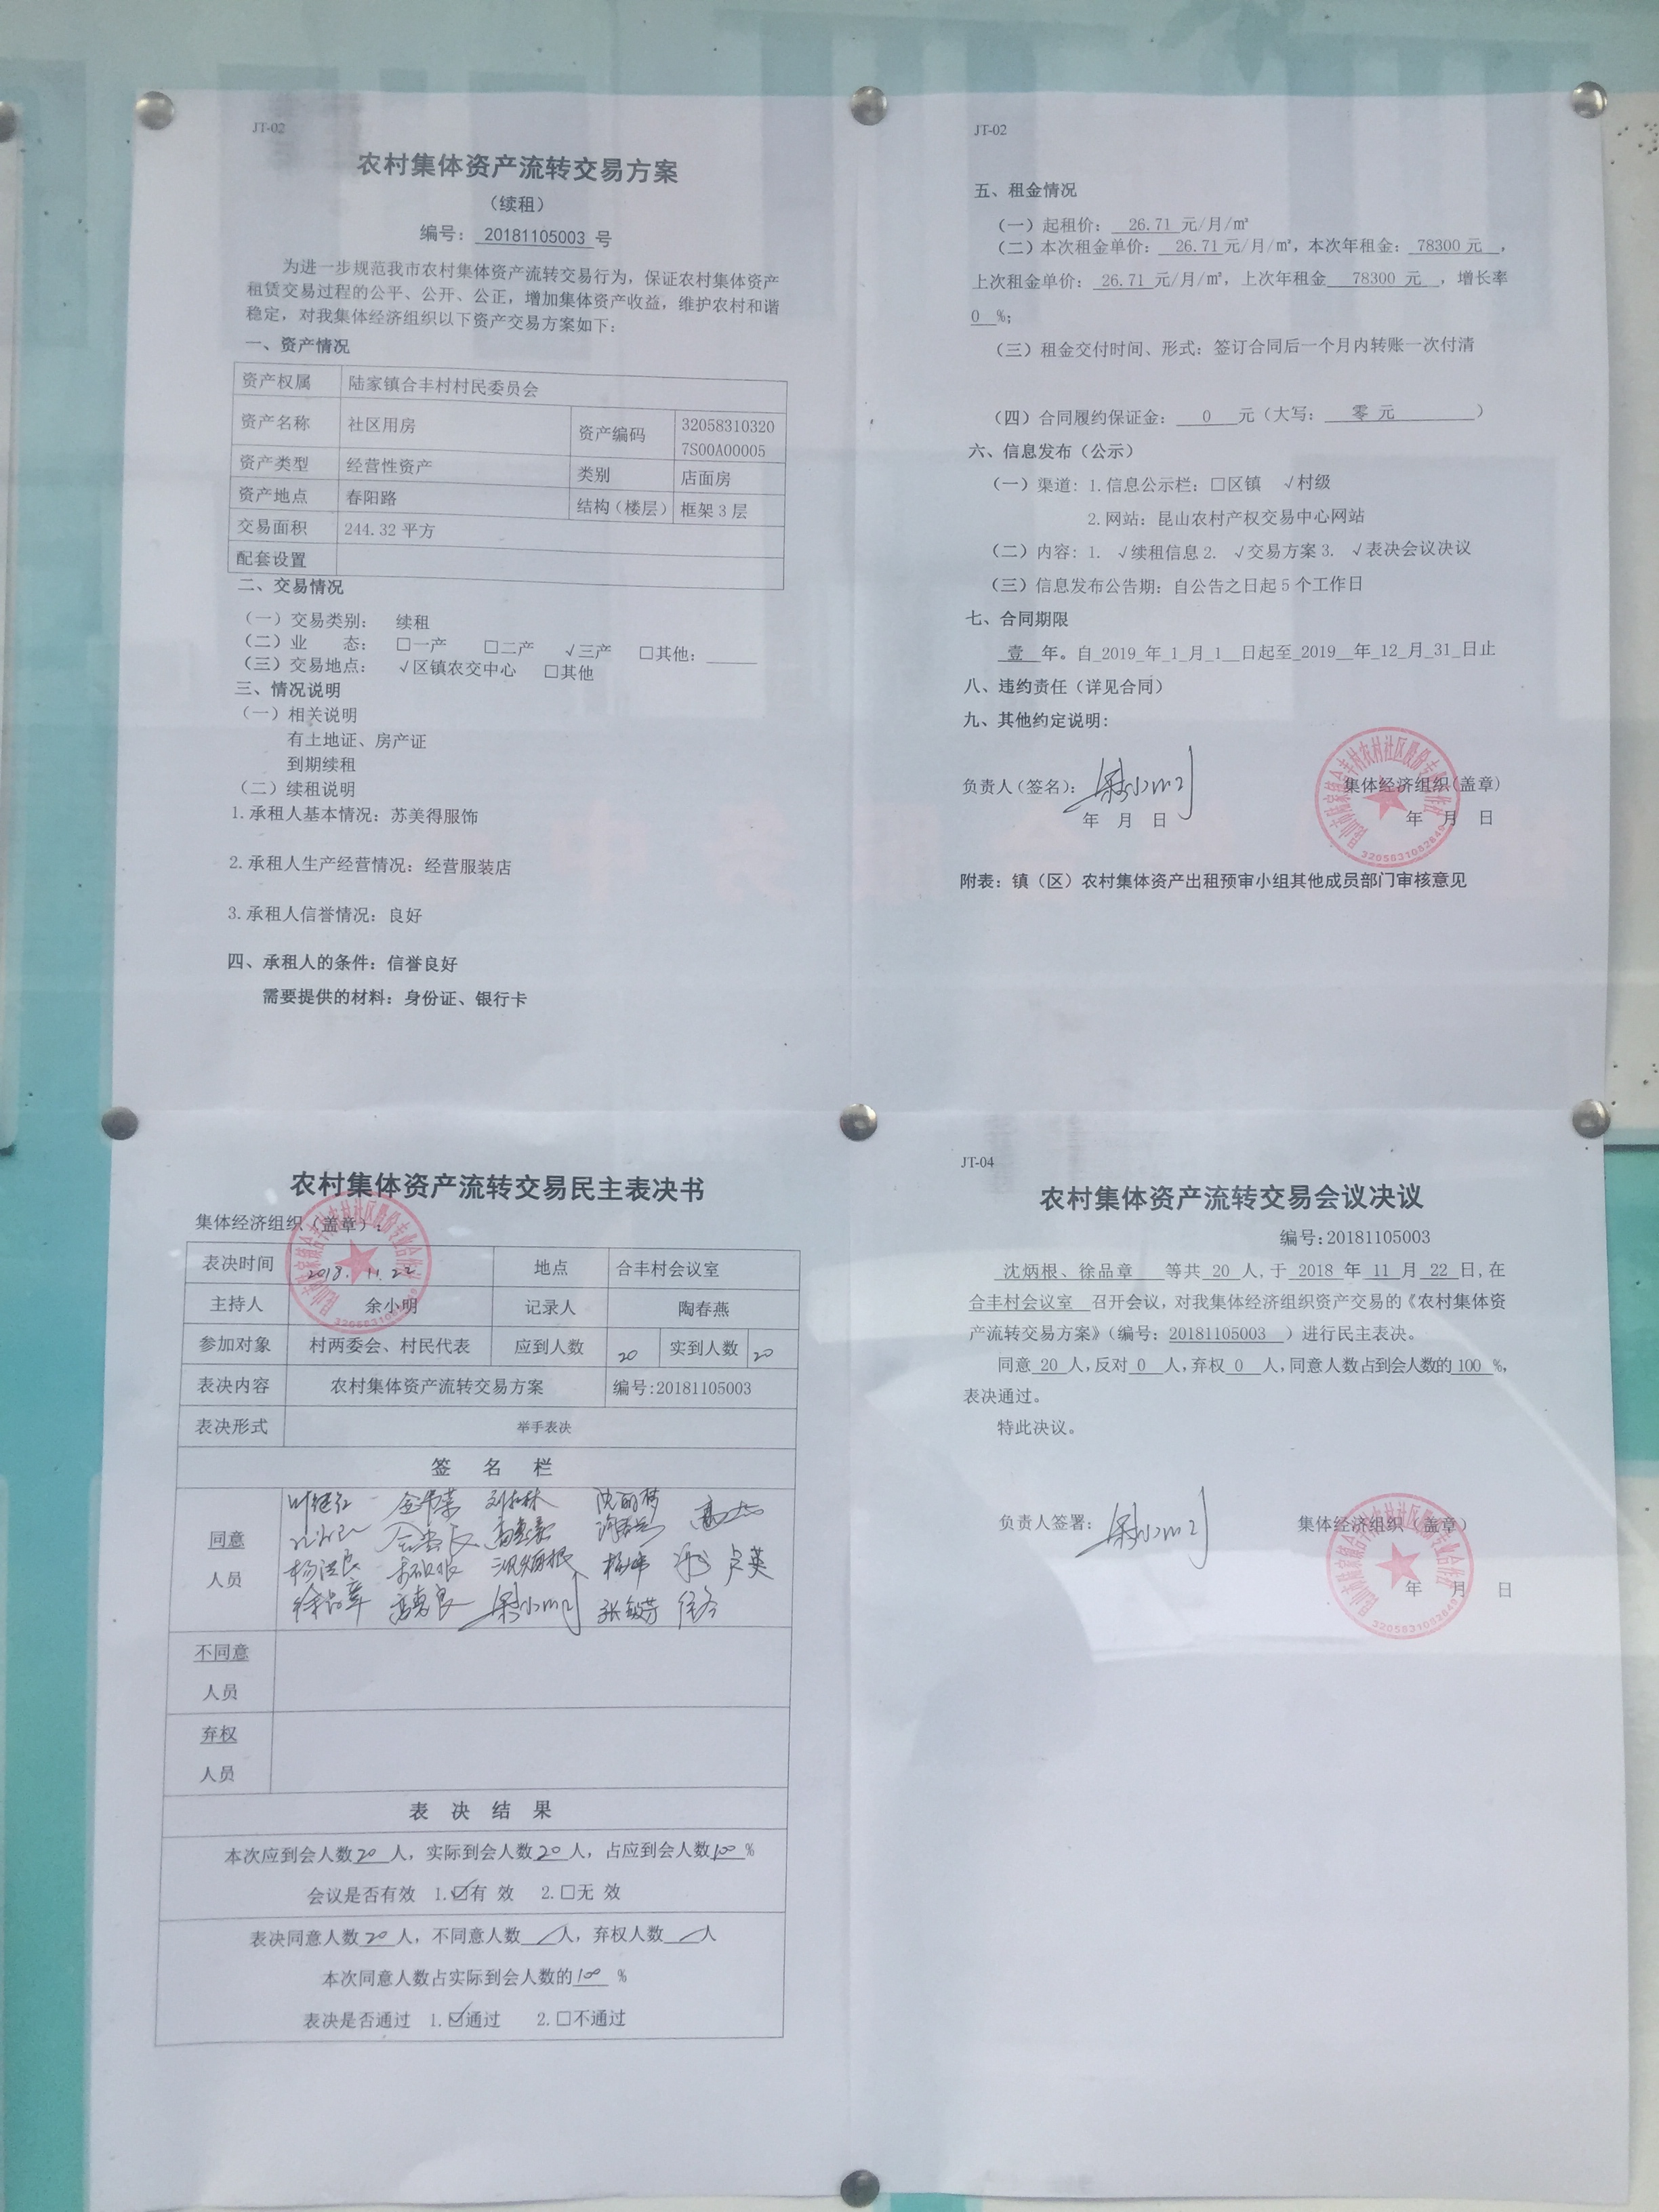 JT-02
农村集体资产流转交易方案
(续租)
编号：20181105003号
为进一步规范我市农村集体资产流转交易行为，保证农村集体资产
租赁交易过程的公平、公开、公正，增加集体资产收益，维护农村和谐
稳定，对我集体经济组织以下资产交易方案如下：
一、资产情况
资产权属 陆家镇合丰村村民委员会
资产名称 社区用房 资产编码 32058310320
7S00A00005
资产类型 经营性资产 类别 店面房
资产地点 春阳路 结构(楼层) 框架3层
交易面积 244.32平方
配套设置
二、交易情况
(一)交易类别： 续租
(二)业 态： □一产 □二产 √三产 □其他：
(三)交易地点： √区镇农交中心 □其他
三、情况说明
(一)相关说明
有土地证、房产证
到期续租
(二)续租说明
1.承租人基本情况：苏美得服饰
2.承租人生产经营情况：经营服装店
3.承租人信誉情况：良好
四、承租人的条件：信誉良好
需要提供的材料：身份证、银行卡
JT-02
五、租金情况
(一)起租价： 26.71 元/月/㎡
(二)本次租金单价： 26.71元/月/㎡，本次年租金： 78300元 ，
上次租金单价： 26.71元/月/㎡，上次年租金 78300 元 ，增长率
0 %；
(三)租金交付时间、形式：签订合同后一个月内转账一次付清
(四)合同履约保证金： 0 元(大写： 零 元 )
六、信息发布(公示)
(一)渠道：1.信息公示栏：□区镇 √村级
2.网站：昆山农村产权交易中心网站
(二)内容：1. √续租信息2. √交易方案3. √表决会议决议
(三)信息发布公告期：自公告之日起5个工作日
七、合同期限
壹 年。自 2019 年 1 月 1 日起至 2019 年 12 月 31 日止
八、违约责任(详见合同)
九、其他约定说明：
负责人(签名)： 集体经济组织(盖章)
年 月 日 年 月 日
3205831082849
附表：镇（区）农村集体资产出租预审小组其他成员部门审核意见
农村集体资产流转交易民主表决书
集体经济组织(盖章)：
表决时间 2018.11.22 地点 合丰村会议室
主持人 余小明 记录人 陶春燕
参加对象 村两委会、村民代表 应到人数 20 实到人数 20
表决内容 农村集体资产流转交易方案 编号:20181105003
表决形式 举手表决
签 名 栏
同意
人员
杨洪良 沈炳根
徐品章
不同意
人员
弃权
人员
表 决 结 果
本次应到会人数20人，实际到会人数20人，占应到会人数100%
会议是否有效 1.☑有 效 2.□无 效
表决同意人数20人，不同意人数/人，弃权人数/人
本次同意人数占实际到会人数的100 %
表决是否通过 1.☑通过 2.□不通过
JT-04
农村集体资产流转交易会议决议
编号:20181105003
沈炳根、徐品章 等共 20 人,于 2018 年 11 月 22 日,在
合丰村会议室 召开会议，对我集体经济组织资产交易的《农村集体资
产流转交易方案》（编号：20181105003 ）进行民主表决。
同意 20 人,反对 0 人,弃权 0 人,同意人数占到会人数的100 %，
表决通过。
特此决议。
负责人签署： 集体经济组织（盖章）
年 月 日
3205831082849